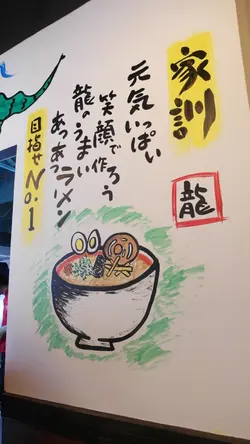 家訓
龍
元気いっぱい
笑顔で作ろう
龍のうまい
あつあつラーメン
目指せNo.1